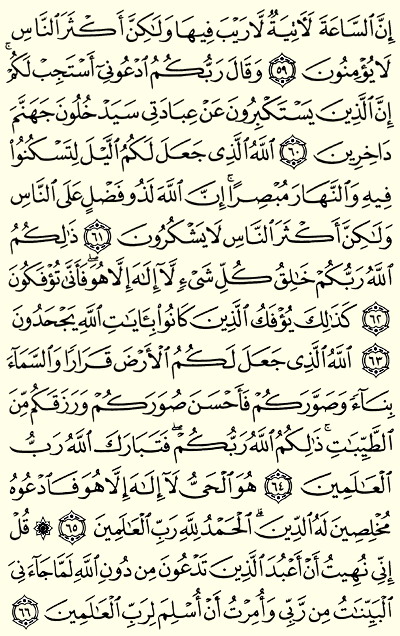 إِنَّ السَّاعَةَ لَآتِيَةٌ لَّا رَيْبَ فِيهَا وَلَٰكِنَّ أَكْثَرَ النَّاسِ
لَا يُؤْمِنُونَ ۝٥٩ وَقَالَ رَبُّكُمُ ادْعُونِي أَسْتَجِبْ لَكُمْ ۚ
إِنَّ الَّذِينَ يَسْتَكْبِرُونَ عَنْ عِبَادَتِي سَيَدْخُلُونَ جَهَنَّمَ
دَاخِرِينَ ۝٦٠ اللَّهُ الَّذِي جَعَلَ لَكُمُ اللَّيْلَ لِتَسْكُنُوا
فِيهِ وَالنَّهَارَ مُبْصِرًا ۚ إِنَّ اللَّهَ لَذُو فَضْلٍ عَلَى النَّاسِ
وَلَٰكِنَّ أَكْثَرَ النَّاسِ لَا يَشْكُرُونَ ۝٦١ ذَٰلِكُمُ
اللَّهُ رَبُّكُمْ خَالِقُ كُلِّ شَيْءٍ لَّا إِلَٰهَ إِلَّا هُوَ ۖ فَأَنَّىٰ تُؤْفَكُونَ
۝٦٢ كَذَٰلِكَ يُؤْفَكُ الَّذِينَ كَانُوا بِآيَاتِ اللَّهِ يَجْحَدُونَ
۝٦٣ اللَّهُ الَّذِي جَعَلَ لَكُمُ الْأَرْضَ قَرَارًا وَالسَّمَاءَ
بِنَاءً وَصَوَّرَكُمْ فَأَحْسَنَ صُوَرَكُمْ وَرَزَقَكُم مِّنَ
الطَّيِّبَاتِ ۚ ذَٰلِكُمُ اللَّهُ رَبُّكُمْ ۖ فَتَبَارَكَ اللَّهُ رَبُّ
الْعَالَمِينَ ۝٦٤ هُوَ الْحَيُّ لَا إِلَٰهَ إِلَّا هُوَ فَادْعُوهُ
مُخْلِصِينَ لَهُ الدِّينَ ۗ الْحَمْدُ لِلَّهِ رَبِّ الْعَالَمِينَ ۝٦٥ ۞ قُلْ
إِنِّي نُهِيتُ أَنْ أَعْبُدَ الَّذِينَ تَدْعُونَ مِن دُونِ اللَّهِ لَمَّا جَاءَنِيَ
الْبَيِّنَاتُ مِن رَّبِّي وَأُمِرْتُ أَنْ أُسْلِمَ لِرَبِّ الْعَالَمِينَ ۝٦٦